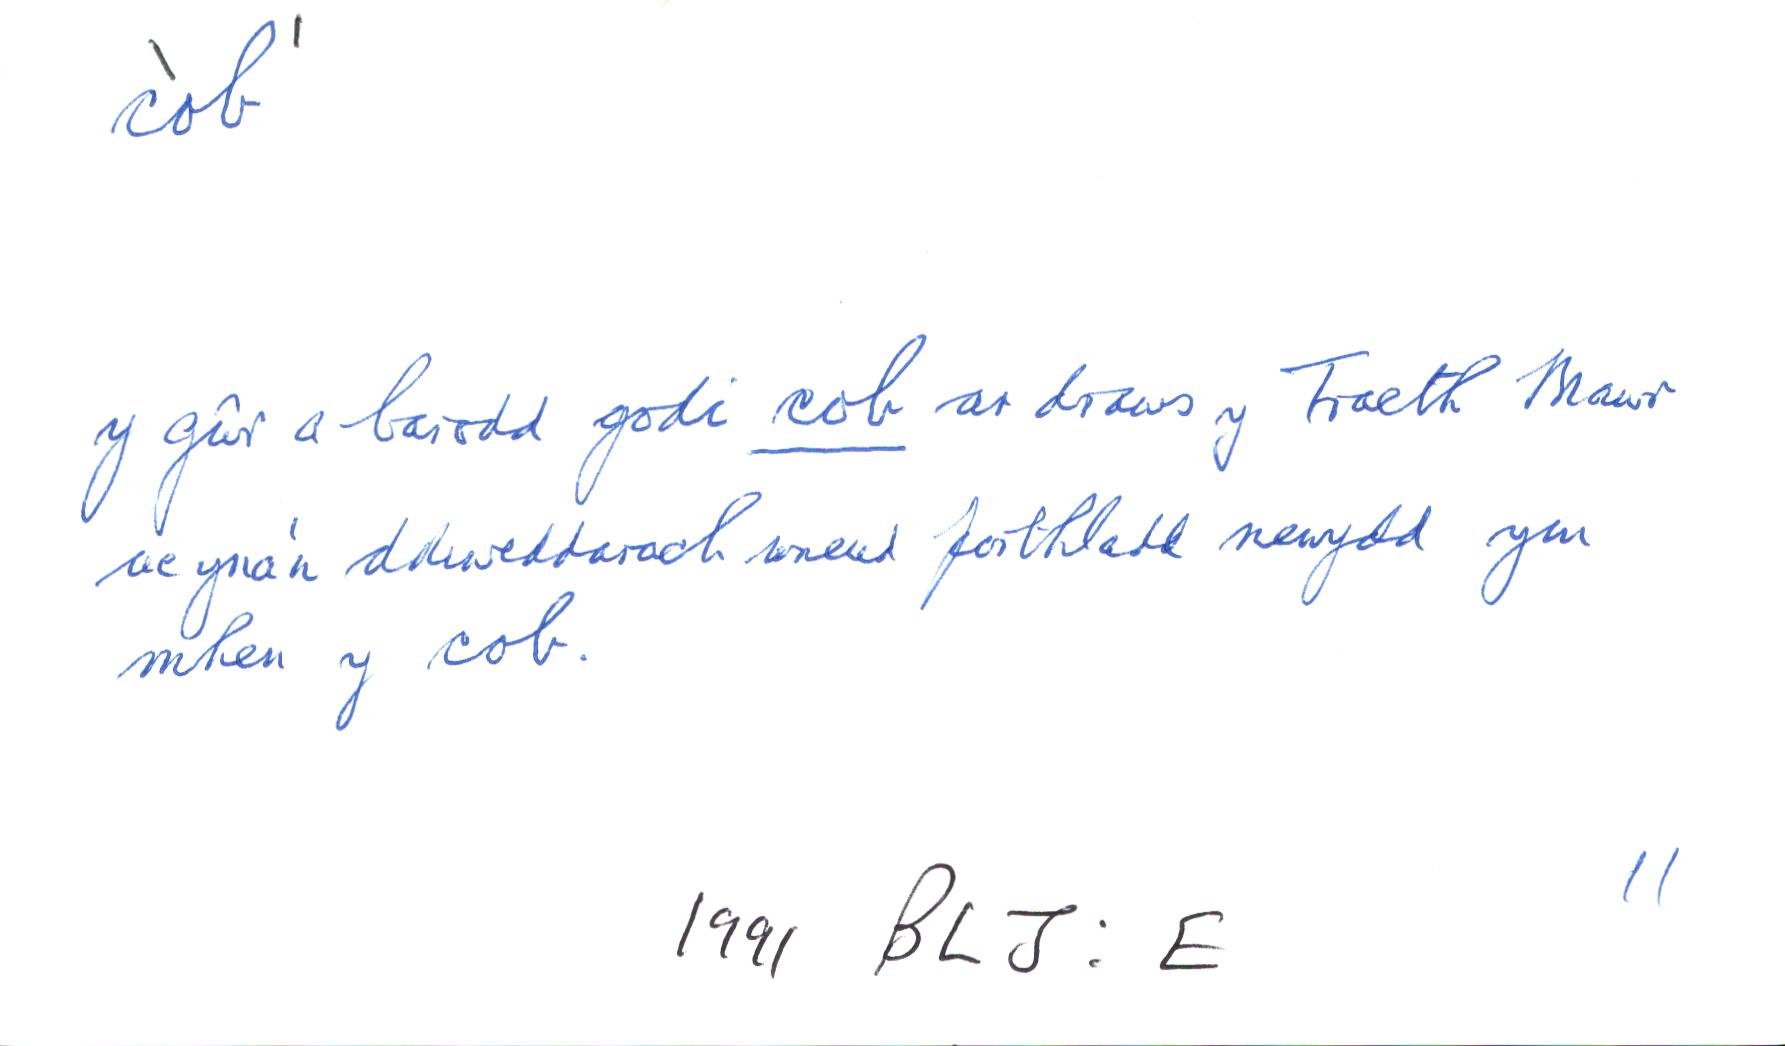 còb¹
y gŵr a barodd godi cob ar draws y Traeth Mawr
ac yna'n ddiweddarach wneud porthladd newydd ym
mhen y cob.
1991 BLJ: E 11